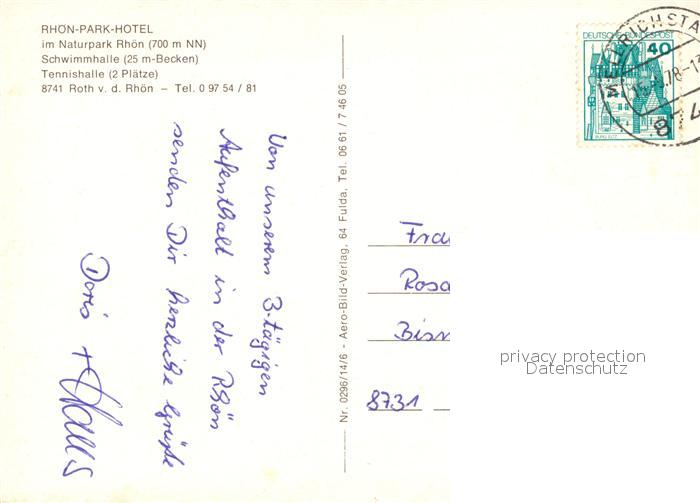 RHÖN-PARK-HOTEL
im Naturpark Rhön (700 m NN)
Schwimmhalle (25 m-Becken)
Tennishalle (2 Plätze)
8741 Roth v. d. Rhön – Tel. 0 97 54 / 81
Von unserem 3-tägigen
Aufenthalt in der Rhön
senden Dir herzliche Grüße
Doris + Hans
Nr. 0296/14/6 - Aero-Bild-Verlag, 64 Fulda, Tel. 06 61 / 7 46 05
DEUTSCHE BUNDESPOST
40
BURG ELTZ
MELLRICHSTA
78-1
874
Frau
Rosa
Bism
8731
privacy protection
Datenschutz